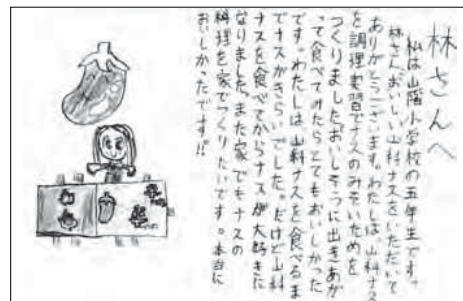 林さんへ
私は山階小学校の五年生です。
林さんおいしい山科ナスをいただいて
ありがとうございます。わたしは、山科ナス
を調理実習でナスのみそいためを
つくりましたおいしそうに出きあが
って食べてみたらとてもおいしかった
です。わたしは、山科ナスを食べるま
でナスがきらいでした。だけど山科
ナスを食べてからナスが大好きに
なりました。また家でもナスの
料理を家でつくりたいです。本当に
おいしかったです!!